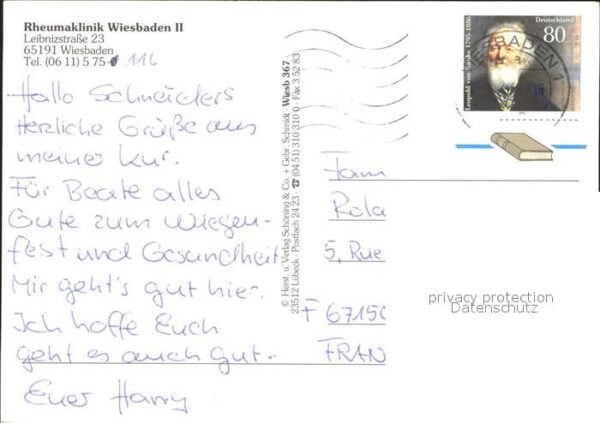 Rheumaklinik Wiesbaden II
Leibnizstraße 23
65191 Wiesbaden
Tel. (06 11) 5 75- 116
Hallo Schneiders
Herzliche Grüße aus
meiner Kur.
Für Beate alles
Gute zum Wiegen-
fest und Gesundheit
Mir geht's gut hier.
Ich hoffe Euch
geht es auch gut.
Euer Harry
© Herst. u. Verlag Schöning & Co. + Gebr. Schmidt · Wiesb 367
23512 Lübeck · Postfach 24 23 ☎ (04 51) 310 310 0 · Fax 3 52 83
Leopold von Ranke 1795-1886
Deutschland
80
Fam
Rola
5, Rue
F 67150
FRAN
privacy protection
Datenschutz